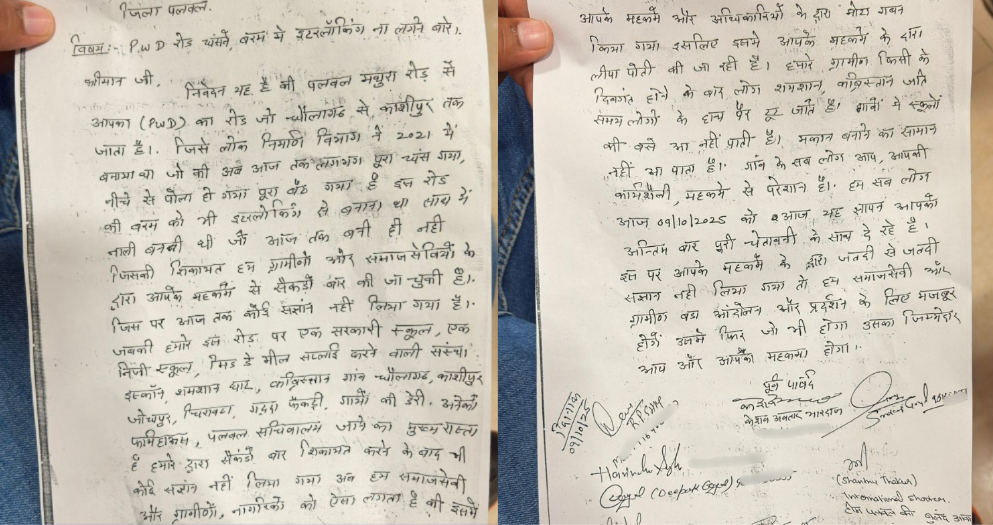 जिला पलवल.
विषय:- P.W.D रोड धंसने, बरम मे इंटरलॉकिंग ना लगने बारे।
श्रीमान जी,
निवेदन यह है की पलवल मथुरा रोड़ से
आपका (PWD) का रोड जो धौलागढ से काशीपुर तक
जाता है। जिसे लोक निर्माण विभाग ने 2021 में
बनाया था जो की अब आज तक लगभग पूरा धंस गया,
नीचे से पोला हो गया पूरा बैठ गया है इस रोड
की बरम को भी इंटरलोकिंग से बनाना था साथ में
नाली बननी थी जो आज तक बनी ही नही
जिसकी शिकायत हम ग्रामीणों और समाजसेवियों के
द्वारा आपके महकमे से सैकड़ो बार की जा चुकी है।
जिस पर आज तक कोई संज्ञान नहीं लिया गया है।
जबकी हमारे इस रोड पर एक सरकारी स्कूल, एक
निजी स्कूल, मिड डे मील सप्लाई करने वाली संस्था
इस्कॉन, शमशान घाट, कब्रिस्तान गांव धौलागढ, काशीपुर
जोधपुर, चिरावटा, फैक्ट्री, गायों की डेरी, अनेको
फार्महाऊस, पलवल सचिवालय जाने का मुख्य रास्ता
है हमारे द्वारा सैकड़ों बार शिकायत करने के बाद भी
कोई संज्ञान नहीं लिया गया अब हम समाजसेवी
और ग्रामीणों, नागरिकों को ऐसा लगता है की इसमें
आपके महकमे और अधिकारियों के द्वारा मोटा गबन
किया गया इसलिए इसमे आपके महकमे के द्वारा
लीपा पोती की जा रही है। हमारे ग्रामीण किसी के
दिवगंत होने के बाद लोग शमशान, कब्रिस्तान जाते
समय लोगो के हाथ पैर टूट जाते है। गावों में स्कूलों
की बसें आ नहीं पाती है। मकान बनाने का सामान
नहीं आ पाता है। गांव के सब लोग आप, आपकी
कार्यशैली, महकमे से परेशान है। हम सब लोग
आज 09/10/2025 को आज यह ज्ञापन आपको
अन्तिम बार पूरी चेतावनी के साथ दे रहे है।
इस पर आपके महकमे के द्वारा जल्दी से जल्दी
संज्ञान नहीं लिया गया तो हम समाजसेवी और
ग्रामीण बडा आंदोलन और प्रदर्शन के लिए मजबूर
होगें उसमे फिर जो भी होगा उसका जिम्मेदार
आप और आपका महकमा होगा।
दिनांक
09/10/25
पूर्व पार्षद
केशव अवतार भारद्वाज
(Deepak Goyal)
(Shanhu Thakur)
International
टीम पलवल की बुलंद आवाज